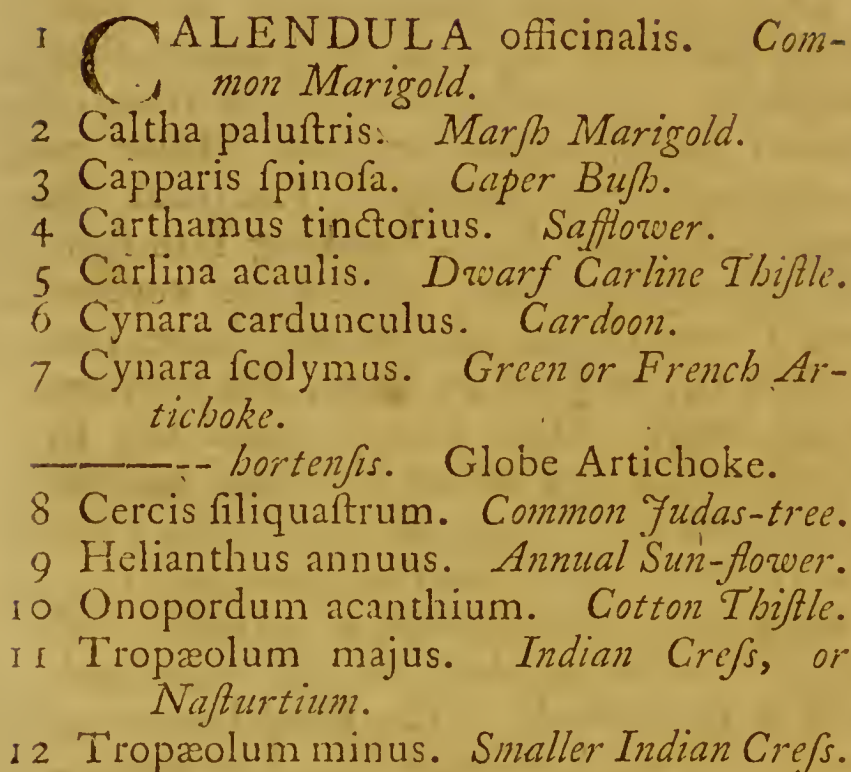 1 CALENDULA officinalis. Com-
mon Marigold.
2 Caltha paluſtris. Marſh Marigold.
3 Capparis ſpinoſa. Caper Buſh.
4 Carthamus tinctorius. Safflower.
5 Carlina acaulis. Dwarf Carline Thiſtle.
6 Cynara cardunculus. Cardoon.
7 Cynara ſcolymus. Green or French Ar-
tichoke.
———-- hortenſis. Globe Artichoke.
8 Cercis ſiliquaſtrum. Common Judas-tree.
9 Helianthus annuus. Annual Sun-flower.
10 Onopordum acanthium. Cotton Thiſtle.
11 Tropæolum majus. Indian Creſs, or
Naſturtium.
12 Tropæolum minus. Smaller Indian Creſs.